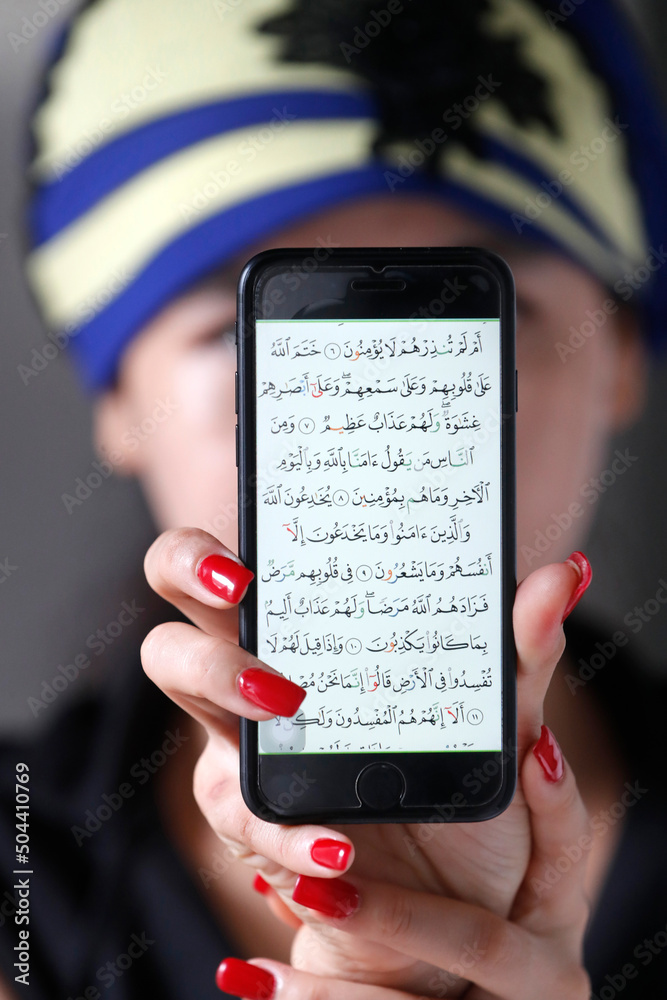 أَمْ لَمْ تُنذِرْهُمْ لَا يُؤْمِنُونَ ٦ خَتَمَ ٱللَّهُ
عَلَىٰ قُلُوبِهِمْ وَعَلَىٰ سَمْعِهِمْ ۖ وَعَلَىٰٓ أَبْصَٰرِهِمْ
غِشَٰوَةٌ ۖ وَلَهُمْ عَذَابٌ عَظِيمٌ ٧ وَمِنَ
ٱلنَّاسِ مَن يَقُولُ ءَامَنَّا بِٱللَّهِ وَبِٱلْيَوْمِ
ٱلْءَاخِرِ وَمَا هُم بِمُؤْمِنِينَ ٨ يُخَٰدِعُونَ ٱللَّهَ
وَٱلَّذِينَ ءَامَنُوا۟ وَمَا يَخْدَعُونَ إِلَّآ
أَنفُسَهُمْ وَمَا يَشْعُرُونَ ٩ فِى قُلُوبِهِم مَّرَضٌ
فَزَادَهُمُ ٱللَّهُ مَرَضًا ۖ وَلَهُمْ عَذَابٌ أَلِيمٌۢ
بِمَا كَانُوا۟ يَكْذِبُونَ ١٠ وَإِذَا قِيلَ لَهُمْ لَا
تُفْسِدُوا۟ فِى ٱلْأَرْضِ قَالُوٓا۟ إِنَّمَا نَحْنُ
١١ أَلَآ إِنَّهُمْ هُمُ ٱلْمُفْسِدُونَ وَلَٰكِن
Adobe Stock
© Adobe Stock
504410769